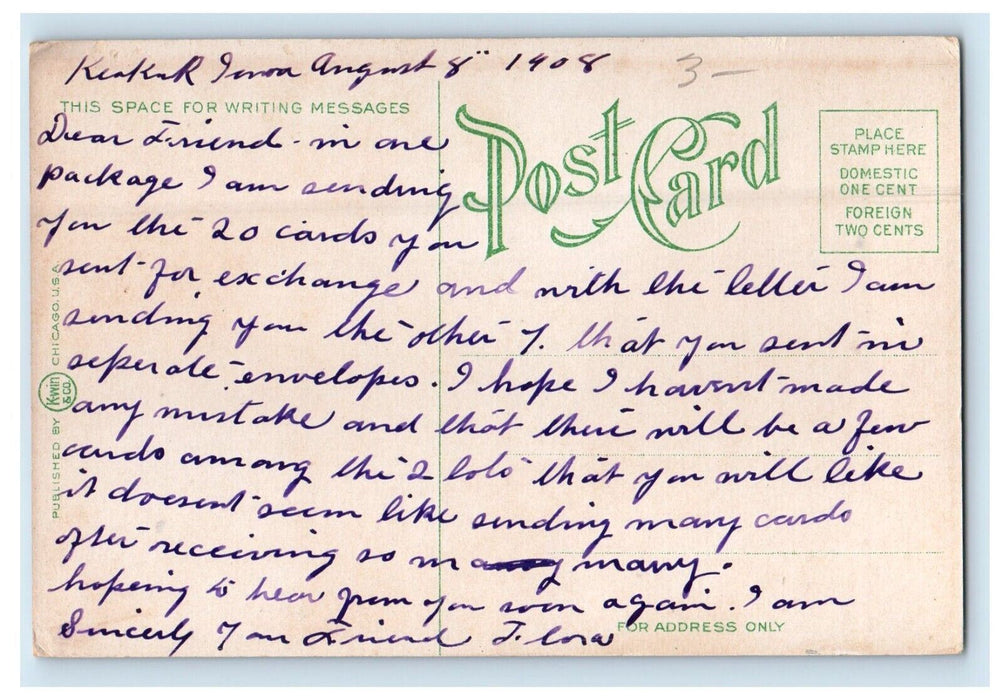 Keokuk Iowa August 8" 1908
3-
THIS SPACE FOR WRITING MESSAGES
Post Card
PLACE
STAMP HERE
DOMESTIC
ONE CENT
FOREIGN
TWO CENTS
Dear Friend - in one
package I am sending
you the 20 cards you
sent for exchange and with the letter I am
sending you the other 7. that you sent in
seperate envelopes. I hope I havent made
any mistake and that there will be a few
cards among the 2 lots that you will like
it doesent seem like sending many cards
after receiving so many many.
hopeing to hear from you soon again. I am
Sincerly Your Friend Flora
FOR ADDRESS ONLY
PUBLISHED BY Kwin & CO. CHICAGO, U.S.A.